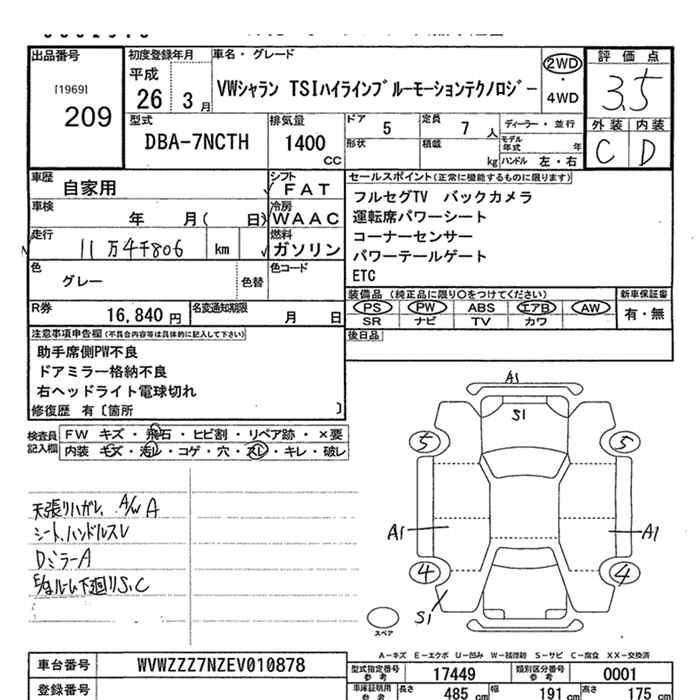 出品番号
[1969]
209
初度登録年月
平成
26 3 月
車名・グレード
VWシャラン TSIハイラインブルーモーションテクノロジー
2WD
・
4WD
評価点
3.5
外装 内装
C D
型式
DBA-7NCTH
排気量
1400
CC
ドア 5
定員 7 人
ディーラー・並行
形状
積載 kg
モデル年式 年
ハンドル 左・右
車歴
自家用
シフト
FAT
車検
年 月( 日)
冷房
WAAC
走行
11万4千806 km
燃料
ガソリン
色
グレー
色替
色コード
R券
16,840 円
名変通知期限
月 日
セールスポイント(正常に機能するものに限ります)
フルセグTV バックカメラ
運転席パワーシート
コーナーセンサー
パワーテールゲート
ETC
装備品 (純正品に限り○をつけてください)
PS PW ABS エアB AW
SR ナビ TV カワ
新車保証書
有・無
後日品
注意事項申告欄(不具合内容等は具体的に記入して下さい)
助手席側PW不良
ドアミラー格納不良
右ヘッドライト電球切れ
修復歴 有〔箇所 〕
検査員
記入欄
FW キズ・飛石・ヒビ割・リペア跡・×要
内装 キズ・汚れ・コゲ・穴・スレ・キレ・破レ
天張りハガレ、A/W A
シート、ハンドルスレ
DミラーA
E/gルーム下廻りS,C
A1
S1
5 5
A1 A1
4 4
S1
スペア
A-キズ E-エクボ U-凹み W-補修跡 S-サビ C-腐食 XX-交換済
車台番号
WVWZZZ7NZEV010878
登録番号
型式指定番号
参考
17449
類別区分番号
参考
0001
車庫証明用
参考
長さ 485 cm
幅 191 cm
高さ 175 cm